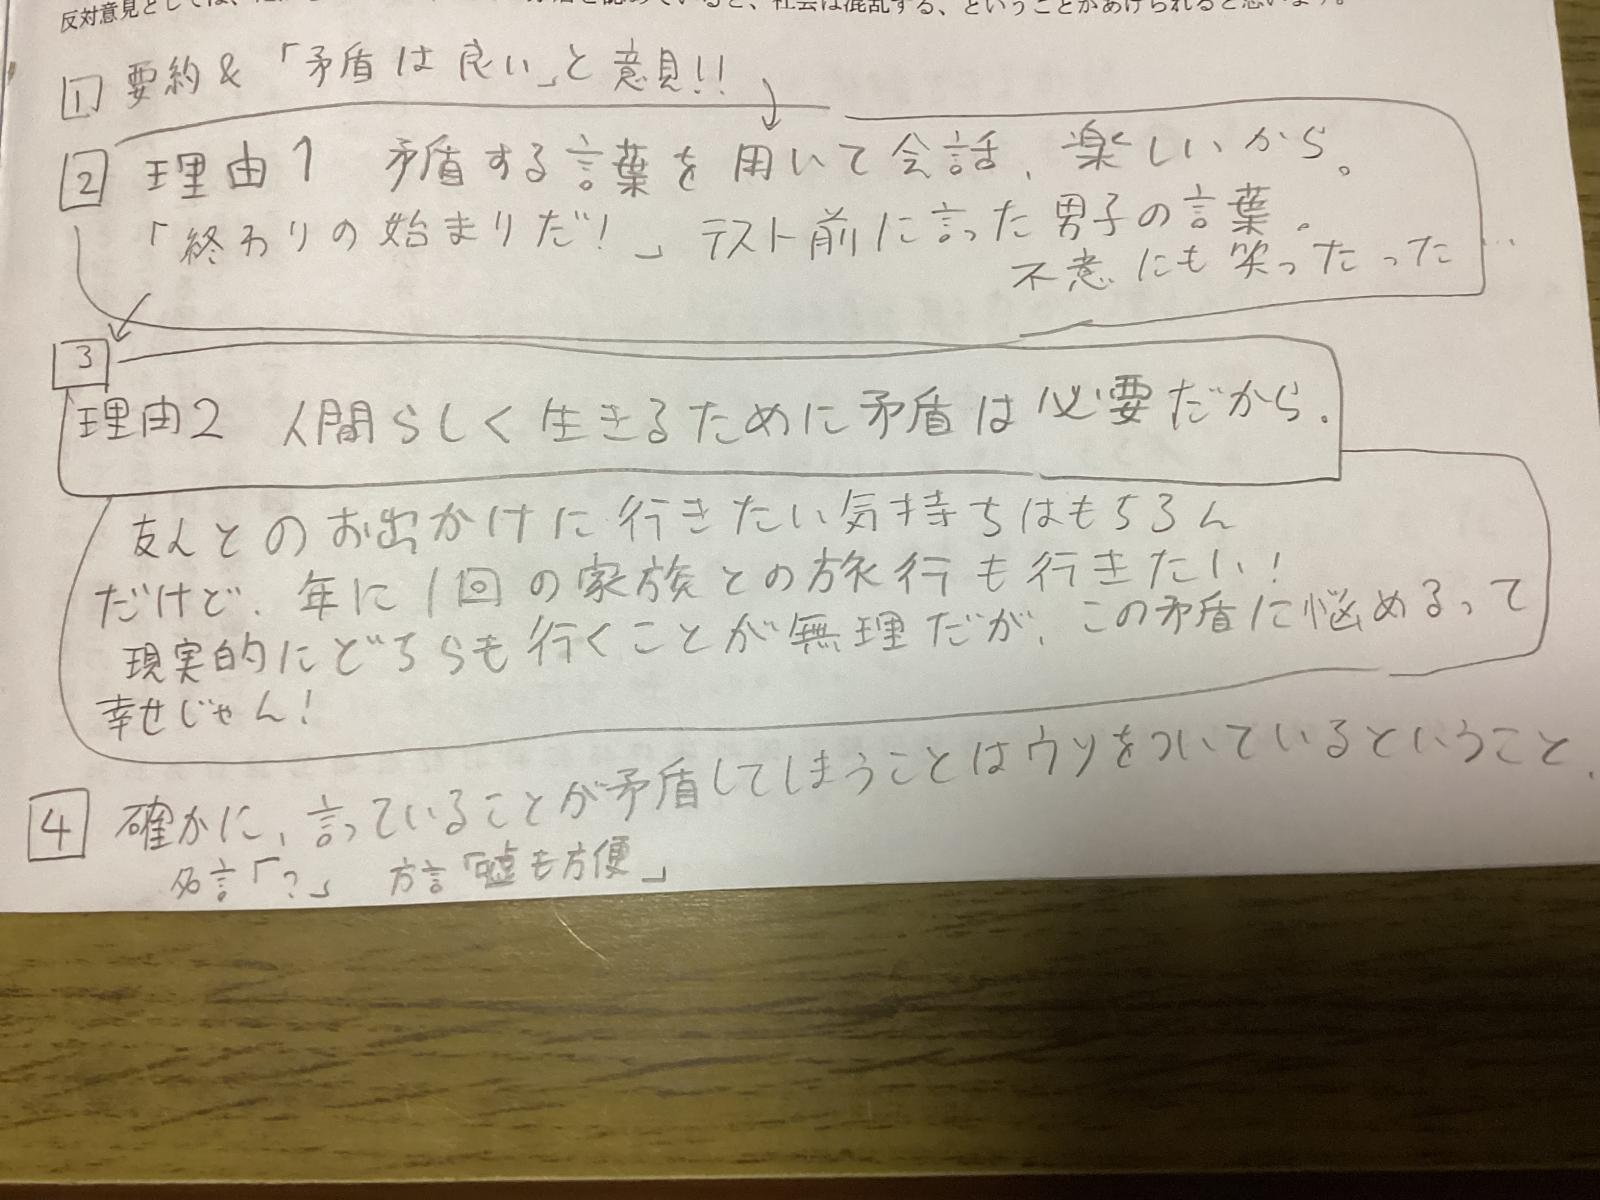 反対意見としては、
認めていると、社会は混乱する、ということがあげられると思います。
1 要約&「矛盾は良い」と意見!!
2 理由1 矛盾する言葉を用いて会話、楽しいから。
「終わりの始まりだ!」テスト前に言った男子の言葉。
不意にも笑ったった…
3
理由2 人間らしく生きるために矛盾は必要だから.
友人とのお出かけに行きたい気持ちはもちろん
だけど、年に1回の家族との旅行も行きたい!
現実的にどちらも行くことが無理だが、この矛盾に悩めるって
幸せじゃん!
4 確かに、言っていることが矛盾してしまうことはウソをついているということ、
名言「?」 方言「嘘も方便」